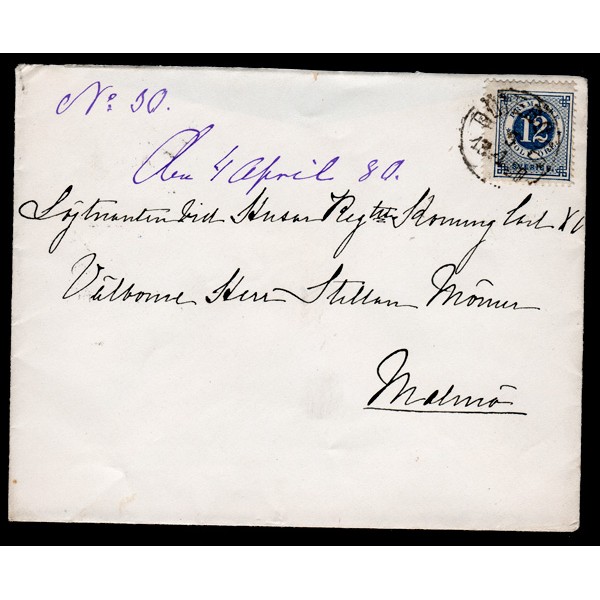 No 50.
Den 4 April 80.
Löjtnanten vid Husar Regtet Konung Carl XV
Välborne Herr Stellan Mörner
Malmö
12
SVERIGE